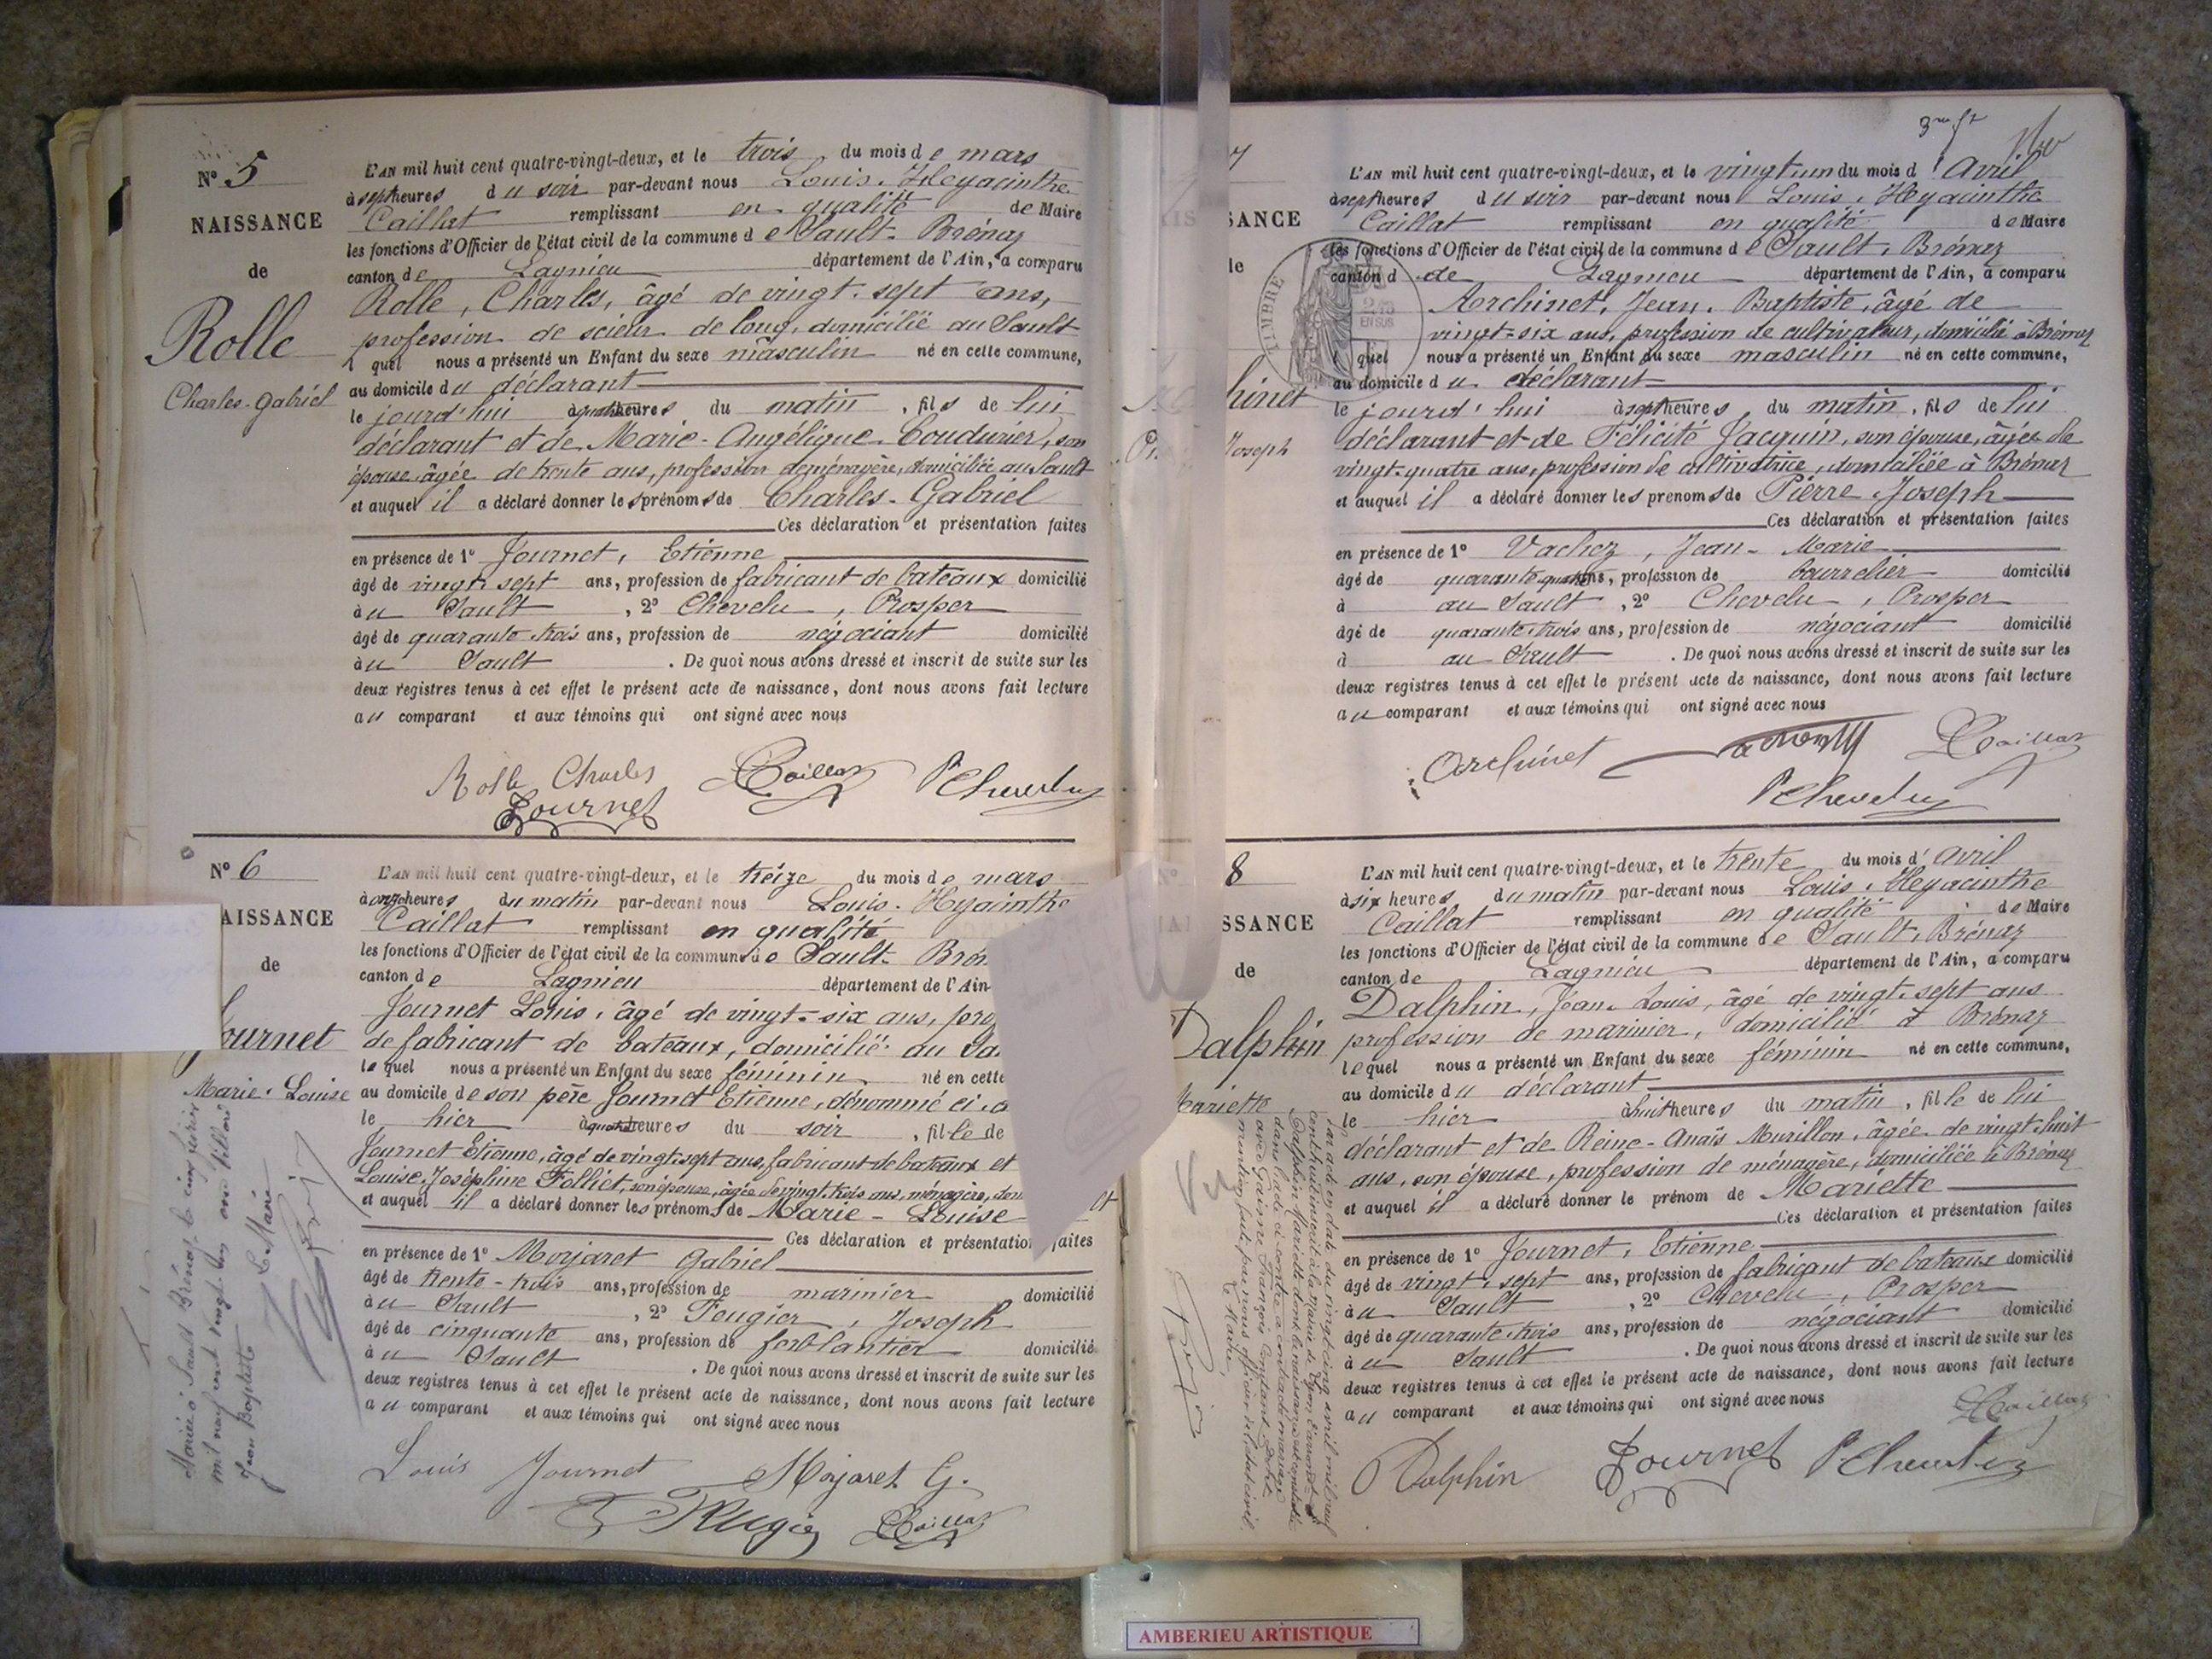 N° 5
NAISSANCE
de
Rolle
Charles-Gabriel
L'AN mil huit cent quatre-vingt-deux, et le trois du mois de mars
à sept heures du soir par-devant nous Louis, Hyacinthe
Caillat remplissant en qualité de Maire
les fonctions d'Officier de l'état civil de la commune de Sault-Brénaz
canton de Lagnieu département de l'Ain, a comparu
Rolle, Charles, âgé de vingt-sept ans,
profession de scieur de long, domicilié au Sault
lequel nous a présenté un Enfant du sexe masculin né en cette commune,
au domicile du déclarant
le jourd'hui à quatre heures du matin, fils de lui
déclarant et de Marie-Angélique Coudurier, son
épouse, âgée de trente ans, profession de ménagère, domiciliée au Sault
et auquel il a déclaré donner les prénoms de Charles-Gabriel
Ces déclaration et présentation faites
en présence de 1° Journet, Etienne
âgé de vingt-sept ans, profession de fabricant de bateaux domicilié
au Sault, 2° Chevelu, Prosper
âgé de quarante-trois ans, profession de négociant domicilié
au Sault. De quoi nous avons dressé et inscrit de suite sur les
deux registres tenus à cet effet le présent acte de naissance, dont nous avons fait lecture
au comparant et aux témoins qui ont signé avec nous
Rolle Charles Caillat P Chevelu
Journet
N° 6
AISSANCE
de
Journet
Marie-Louise
L'AN mil huit cent quatre-vingt-deux, et le treize du mois de mars
à onze heures du matin par-devant nous Louis-Hyacinthe
Caillat remplissant en qualité
les fonctions d'Officier de l'état civil de la commune de Sault-Brén
canton de Lagnieu département de l'Ain
Journet Louis, âgé de vingt-six ans, pro
de fabricant de bateaux, domicilié au Sa
lequel nous a présenté un Enfant du sexe féminin né en cette
au domicile de son père Journet Etienne, dénommé ci-a
le hier à quatre heures du soir, fille de
Journet Etienne, âgé de vingt-sept ans, fabricant de bateaux et
Louise Joséphine Folliet, son épouse, âgée de vingt-trois ans, ménagère, dom lt
et auquel il a déclaré donner les prénoms de Marie-Louise
Ces déclaration et présentation faites
en présence de 1° Morjaret Gabriel
âgé de trente-trois ans, profession de marinier domicilié
au Sault, 2° Feugier, Joseph
âgé de cinquante ans, profession de ferblantier domicilié
au Sault. De quoi nous avons dressé et inscrit de suite sur les
deux registres tenus à cet effet le présent acte de naissance, dont nous avons fait lecture
au comparant et aux témoins qui ont signé avec nous
Louis Journet Morjaret G.
Feugier Caillat
Mariée à Sault Brénaz le cinq
mil neuf cent vingt
Jean Baptiste
Le Maire
7
SANCE
le
hinet
Joseph
L'AN mil huit cent quatre-vingt-deux, et le vingt un du mois d'Avril
à sept heures du soir par-devant nous Louis, Hyacinthe
Caillat remplissant en qualité de Maire
les fonctions d'Officier de l'état civil de la commune de Sault-Brénaz
canton d de Lagnieu département de l'Ain, a comparu
Archinet, Jean-Baptiste, âgé de
vingt-six ans, profession de cultivateur, domicilié à Brénaz
lequel nous a présenté un Enfant du sexe masculin né en cette commune,
au domicile du déclarant
le jourd'hui à sept heures du matin, fils de lui
déclarant et de Félicité Jacquin, son épouse, âgée de
vingt-quatre ans, profession de cultivatrice, domiciliée à Brénaz
et auquel il a déclaré donner les prénoms de Pierre Joseph
Ces déclaration et présentation faites
en présence de 1° Vachez, Jean-Marie
âgé de quarante-quatre ans, profession de bourrelier domicilié
à au Sault, 2° Chevelu, Prosper
âgé de quarante-trois ans, profession de négociant domicilié
à au Sault. De quoi nous avons dressé et inscrit de suite sur les
deux registres tenus à cet effet le présent acte de naissance, dont nous avons fait lecture
au comparant et aux témoins qui ont signé avec nous
Archinet Caillat
P Chevelu
TIMBRE
EN SUS
8
SSANCE
de
Dalphin
Mariette
L'AN mil huit cent quatre-vingt-deux, et le trente du mois d'avril
à six heures du matin par-devant nous Louis, Hyacinthe
Caillat remplissant en qualité de Maire
les fonctions d'Officier de l'état civil de la commune de Sault-Brénaz
canton de Lagnieu département de l'Ain, a comparu
Dalphin, Jean-Louis, âgé de vingt-sept ans
profession de marinier, domicilié à Brénaz
lequel nous a présenté un Enfant du sexe féminin né en cette commune,
au domicile du déclarant
le hier à huit heures du matin, fille de lui
déclarant et de Reine-Anaïs Murillon, âgée de vingt-huit
ans, son épouse, profession de ménagère, domiciliée à Brénaz
et auquel il a déclaré donner le prénom de Mariette
Ces déclaration et présentation faites
en présence de 1° Journet, Etienne
âgé de vingt-sept ans, profession de fabricant de bateaux domicilié
au Sault, 2° Chevelu, Prosper
âgé de quarante-trois ans, profession de négociant domicilié
à u Sault. De quoi nous avons dressé et inscrit de suite sur les
deux registres tenus à cet effet le présent acte de naissance, dont nous avons fait lecture
au comparant et aux témoins qui ont signé avec nous
Caillat
Dalphin Journet P Chevelu
Par acte en date du vingt cinq avril mil neuf
Dalphin Mariette dont la naissance est constatée
dans l'acte ci-contre a contracté mariage
avec François
mention faite par nous officier de l'état civil.
Le Maire,
AMBERIEU ARTISTIQUE